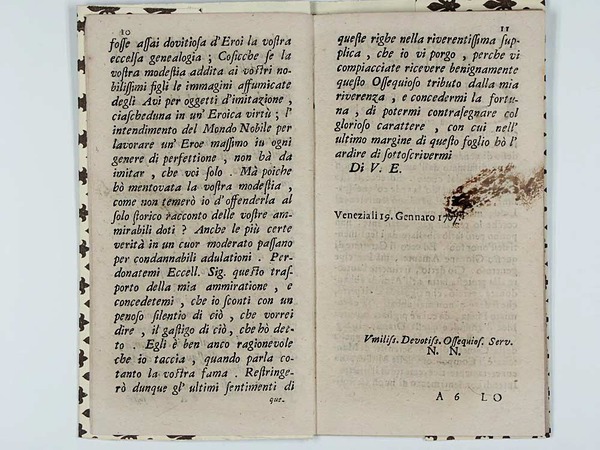 10
fosse assai dovitiosa d'Eroi la vostra
eccelsa genealogia ; Cosicche se la
vostra modestia addita ai vostri no-
bilissimi figli le immagini affumicate
degli Avi per oggetti d'imitazione ,
ciascheduna in un' Eroica virtù ; l'
intendimento del Mondo Nobile per
lavorare un' Eroe massimo iu ogni
genere di perfettione , non bà da
imitar , che voi solo . Mà poiche
hò mentovata la vostra modestia ,
come non temerò io d'offenderla al
solo storico racconto delle vostre am-
mirabili doti ? Anche le più certe
verità in un cuor moderato passano
per condannabili adulationi . Per-
donatemi Eccell. Sig. questo tras-
porto della mia ammiratione , e
concedetemi , che io sconti con un
penoso silentio di ciò , che vorrei
dire , il gastigo di ciò , che hò det-
to . Egli è ben anco ragionevole
che io taccia , quando parla co-
tanto la vostra fama . Restringe-
rò dunque gl' ultimi sentimenti di
que-
11
queste righe nella riverentissima sup-
plica , che io vi porgo , perche vi
compiacciate ricevere benignamente
questo Ossequioso tributo dalla mia
riverenza , e concedermi la fortu-
na , di potermi contrasegnare col
glorioso carattere , con cui nell'
ultimo margine di questo foglio hò l'
ardire di sottoscrivermi
Di V. E.
Venezia li 19. Gennaro
Vmiliss. Devotiss. Ossequios. Serv.
N. N.
A 6 LO